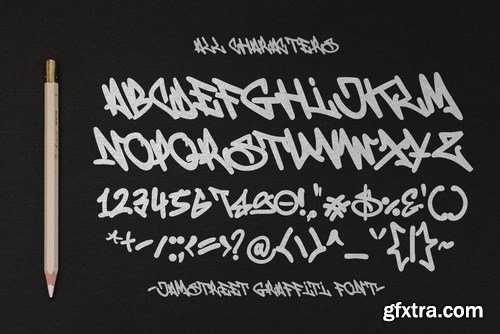 ALL CHARACTERS
ABCDEFGHiJKRM
NOPQRSTUVWXYZ
1234567890!,"*#$%&'()
*+-/:;<=>?@[\]^_`{|}~
-JAMSTREET GRAFFITI FONT-
gfxtra.com